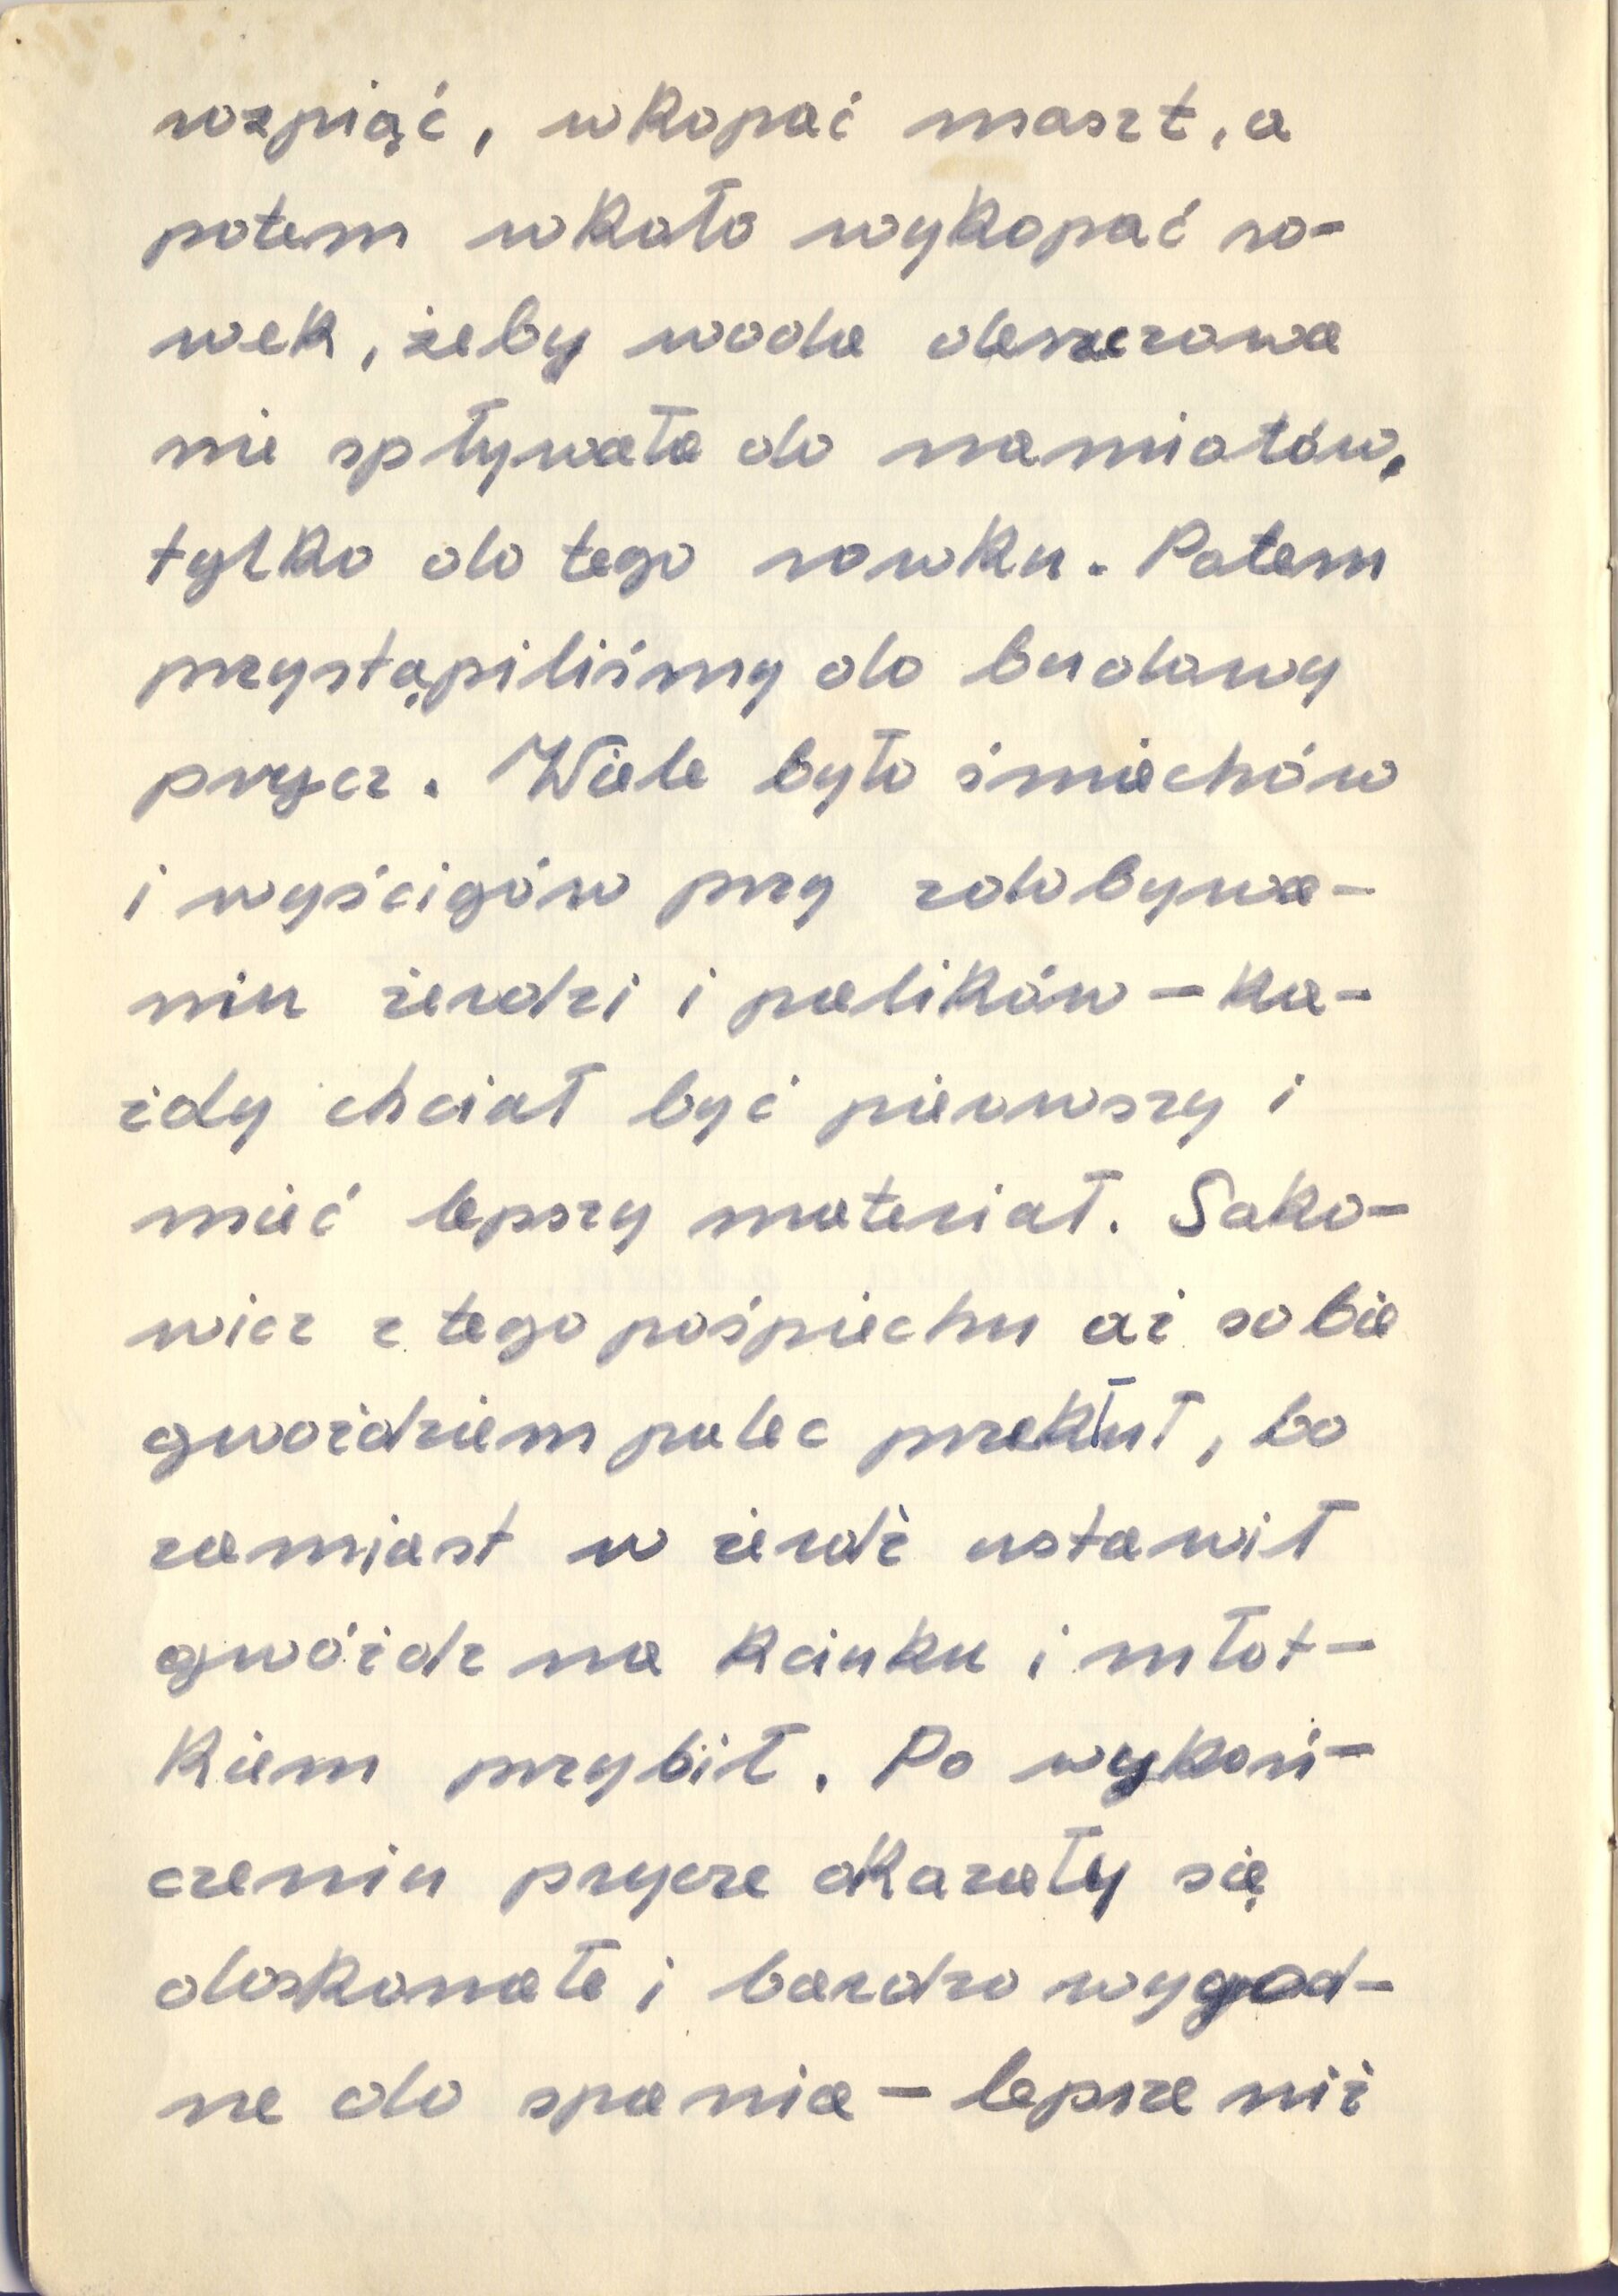 rozpiąć, wkopać maszt, a
potem wkoło wykopać ro-
wek, żeby woda deszczowa
nie spływała do namiotów,
tylko do tego rowku. Potem
przystąpiliśmy do budowy
prycz. Wiele było śmiechów
i wyścigów przy zdobywa-
niu żerdzi i palików – ka-
żdy chciał być pierwszy i
mieć lepszy materiał. Sako-
wicz z tego pośpiechu aż sobie
gwoździem palec przekłuł, bo
zamiast w żerdź ustawił
gwóźdź na kciuku i młot-
kiem przybił. Po wykoń-
czeniu prycze okazały się
doskonałe i bardzo wygod-
ne do spania – lepsze niż